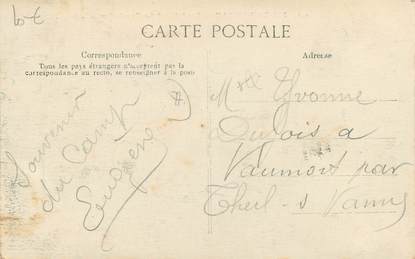 10€
CARTE POSTALE
Correspondance
Tous les pays étrangers n'acceptent pas la
correspondance au recto, se renseigner à la poste
Souvenir
du Camp
Eugène
Adresse
Mlle Yvonne
Dubois à
Vaumoit par
Theil-s Vanne